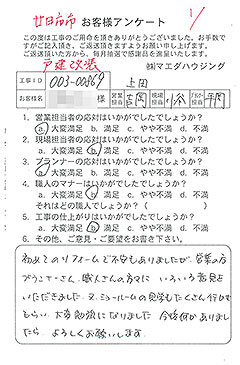 廿日市市 お客様アンケート 1/
この度は工事のご用命を頂きありがとうございました。お手数で
すがご記入頂き、ご返送頂きますようお願い申し上げます。
ご返送頂いた方から、毎月抽選で感謝品を進呈いたします。
戸建改装 ㈱マエダハウジング
工事ID 003-00869 上田
お客様名 様 営業担当 吉岡 現場担当 プランナー担当 平岡
1. 営業担当者の応対はいかがでしたでしょうか?
a. 大変満足 b. 満足 c. やや不満 d. 不満
2. 現場担当者の応対はいかがでしたでしょうか?
a. 大変満足 b. 満足 c. やや不満 d. 不満
3. プランナーの応対はいかがでしたでしょうか?
a. 大変満足 b. 満足 c. やや不満 d. 不満
4. 職人のマナーはいかがでしたでしょうか?
a. 大変満足 b. 満足 c. やや不満 d. 不満
それはどの職人でしょうか? ( )
5. 工事の仕上がりはいかがでしたでしょうか?
a. 大変満足 b. 満足 c. やや不満 d. 不満
6. その他、ご意見・ご要望をお書き下さい。
初めてのリフォームで不安もありましたが、営業の方
プランナーさん、職人さんの方々に いろいろ意見を
いただきました。又、ショールームの見学もたくさん行かせて
もらい 大変勉強になりました。今後何かありまし
たら、よろしくお願いします。